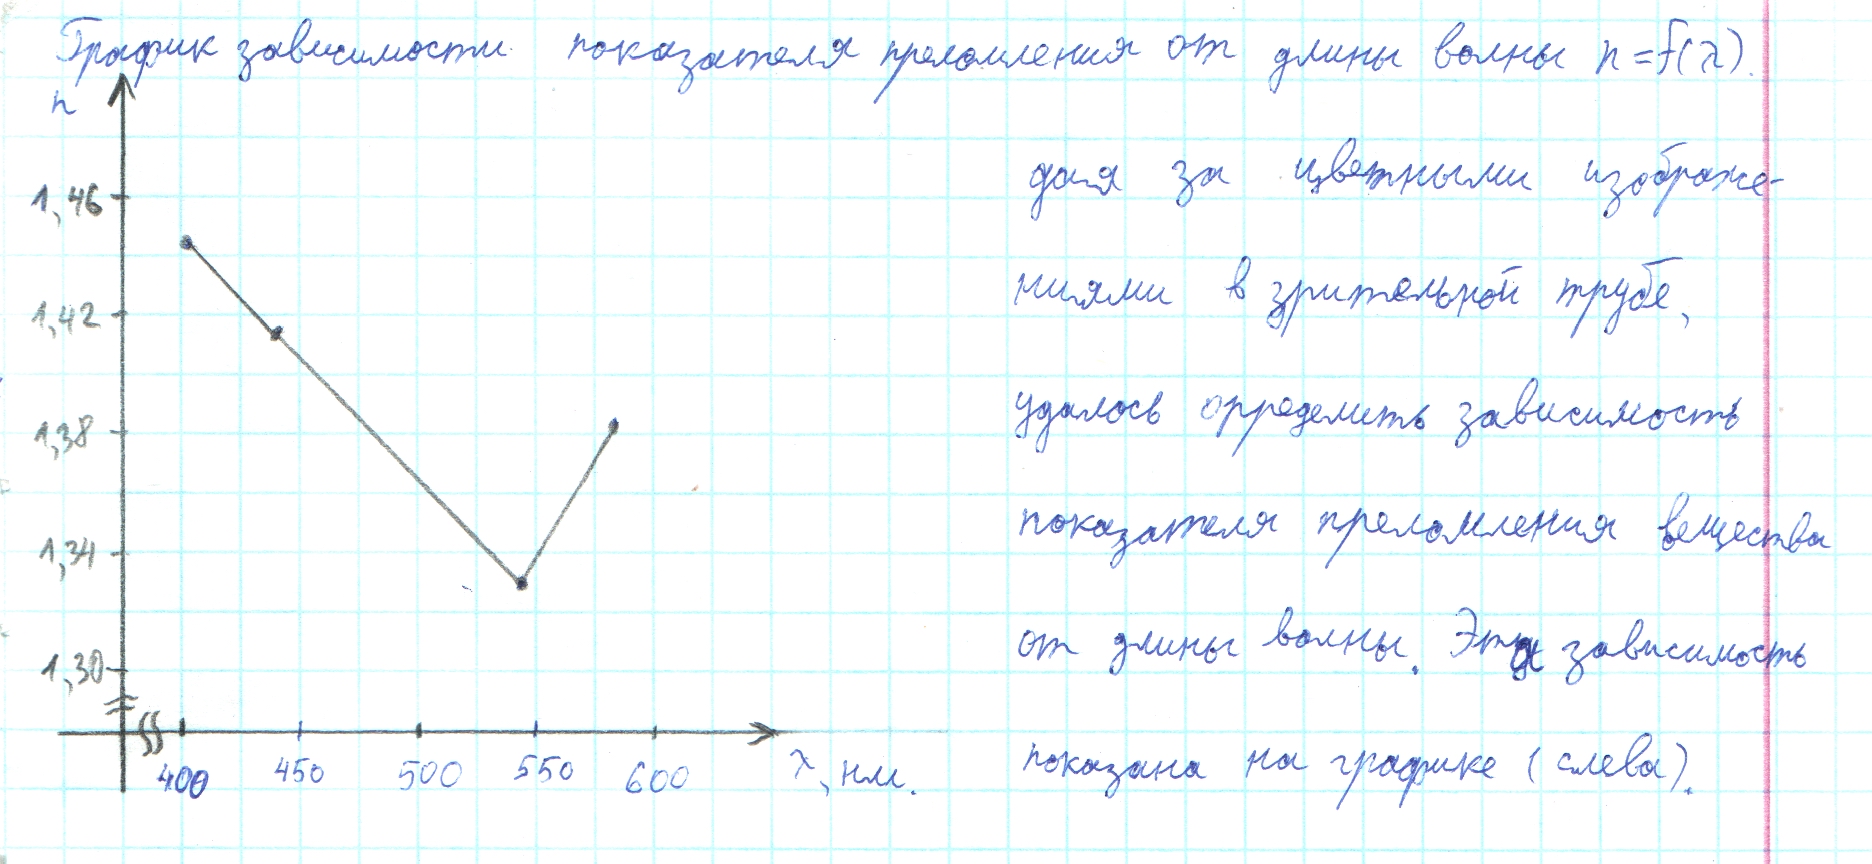 График зависимости показателя преломления от длины волны n=f(λ).
n
1,46
1,42
1,38
1,34
1,30
400 450 500 550 600 λ, нм.
дая за цветными изображе-
ниями в зрительной трубе,
удалось определить зависимость
показателя преломления вещества
от длины волны. Эта зависимость
показана на графике (слева).